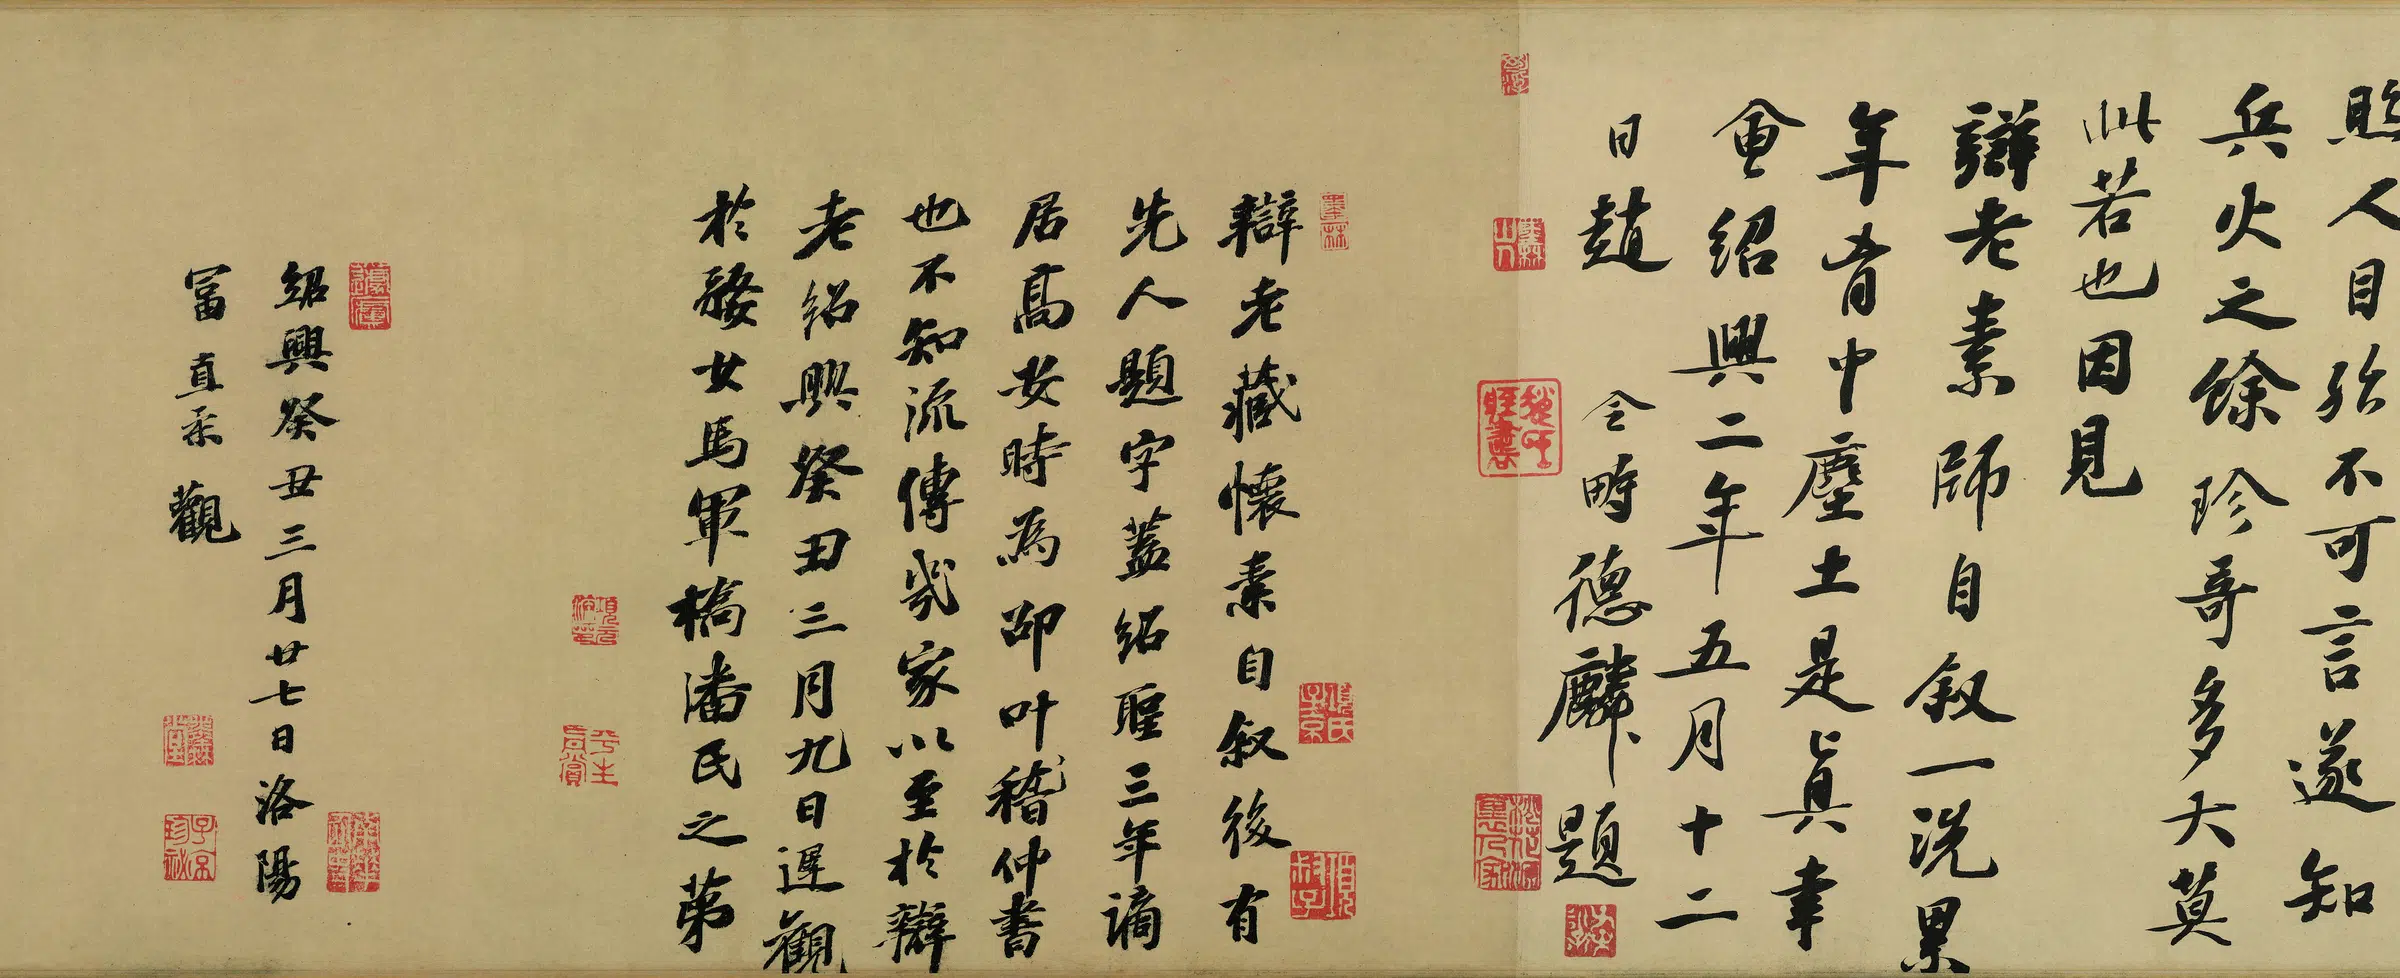 照人目殆不可言遂知
兵火之餘珍哥多大莫
此若也因見
辯老素師自叙一洗累
年胷中塵土是真幸
會紹興二年五月十二
日趙令畤德麟題
辯老藏懷素自叙後有
先人題字蓋紹聖三年謫
居高安時為邵叶稽仲書
也不知流傳幾家以至於辯
老紹興癸丑三月九日遲觀
於婺女馬軍橋潘氏之第
紹興癸丑三月廿七日洛陽
冨直柔觀